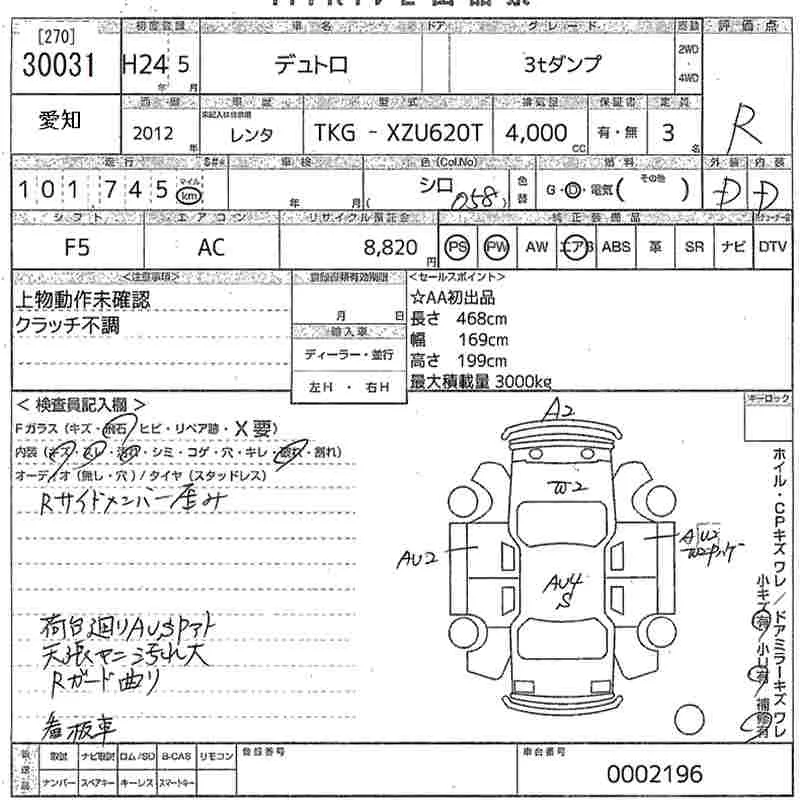 [270]
30031
初度登録 車名 ドア グレード 駆動 評価点
H24 年 5 月 デュトロ 3tダンプ 2WD・4WD
R
愛知
西暦 車歴 型式 排気量 保証書 定員
2012 年 レンタ TKG - XZU620T 4,000 CC 有・無 3 名
走行 車検 色(Col.No) 燃料 外装 内装
101745 マイル km 年 月 シロ (058) 色替 G・D・電気 (その他) D D
シフト エアコン リサイクル預託金 純正装備品
F5 AC 8,820 円 PS PW AW エアB ABS 革 SR ナビ DTV
<注意事項> 登録書類有効期限 <セールスポイント>
上物動作未確認
クラッチ不調
月 日
輸入車
ディーラー・並行
左H ・ 右H
☆AA初出品
長さ 468cm
幅 169cm
高さ 199cm
最大積載量 3000kg
< 検査員記入欄 >
キーロック
Fガラス (キズ・飛石・ヒビ・リペア跡・X要)
内装 (キズ・スレ・汚れ・シミ・コゲ・穴・キレ・破れ・割れ)
オーディオ (無し・穴) / タイヤ (スタッドレス)
Rサイドメンバー歪み
荷台廻りAUSPアト
天張ヤニ汚れ大
Rガード曲り
看板車
A2
W2
AU2
AU4
S
A U2
ホイル・CPキズ ワレ / ドアミラーキズ ワレ
小キズ有 小U有 補修有
取説 ナビ取説 ロム/SD B-CAS リモコン
ナンバー スペアキー キーレス スマートキー
登録番号
車台番号
0002196